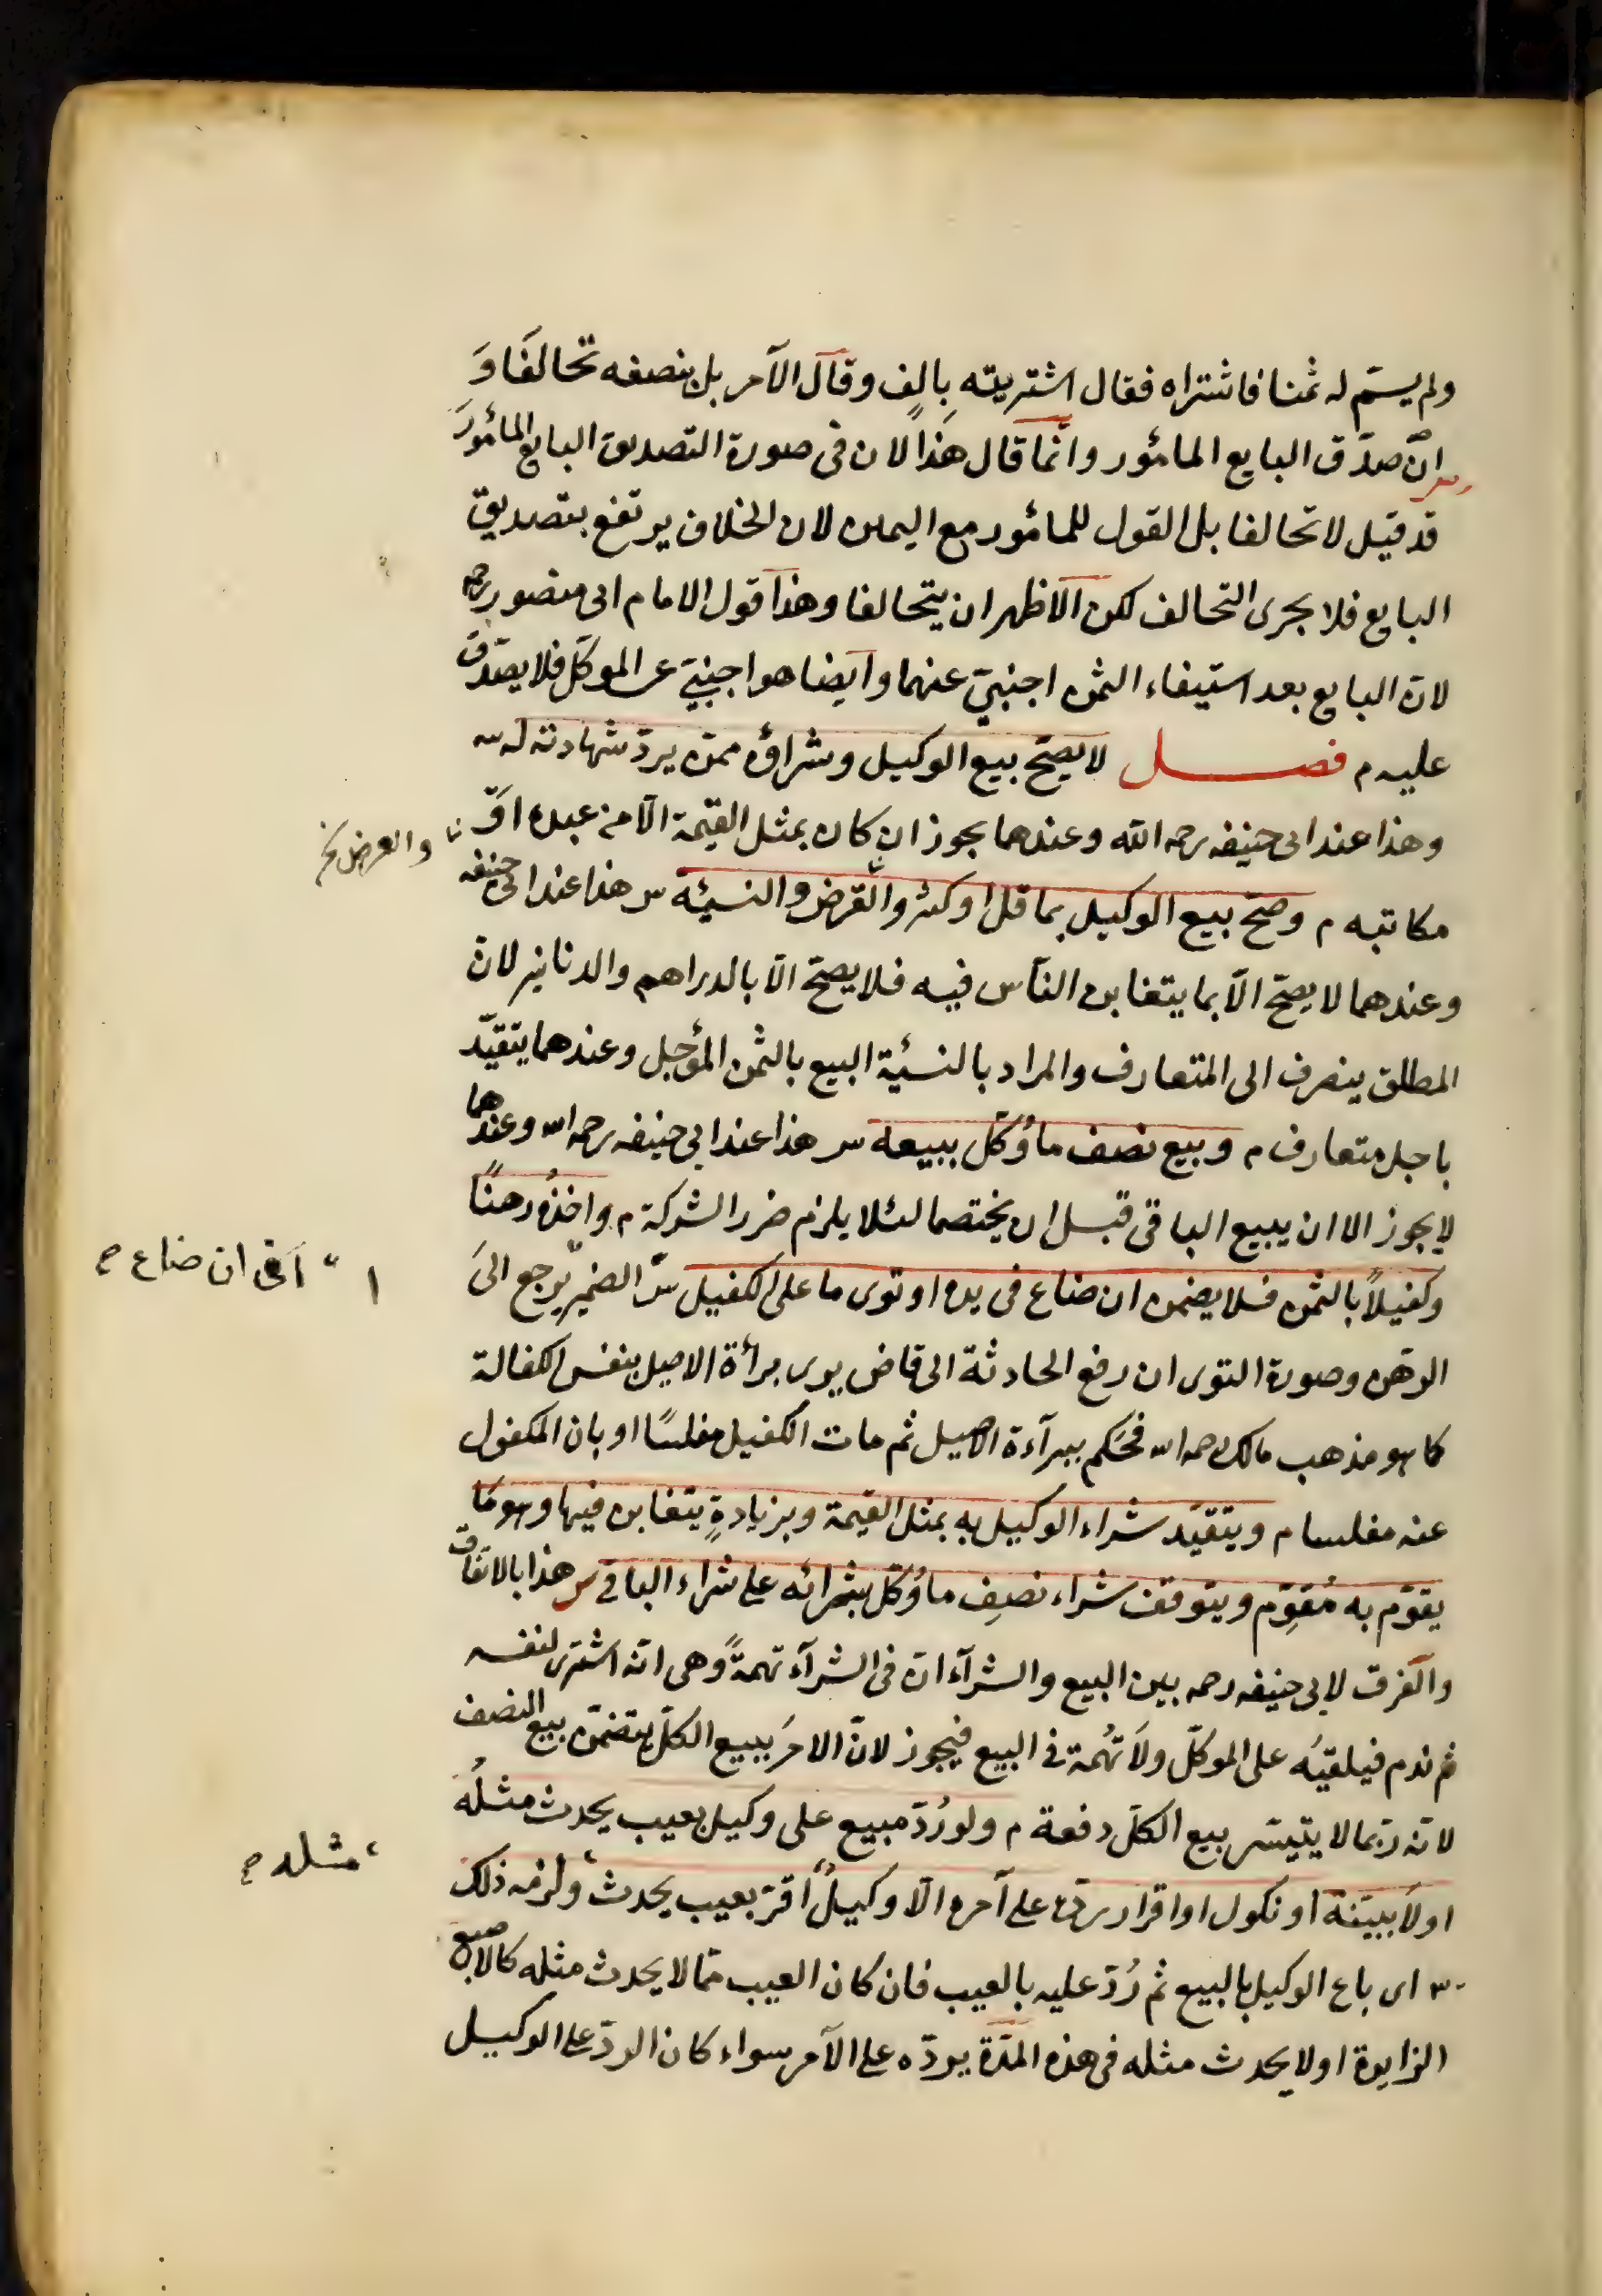 ولم يسمّ له ثمنا فاشتراه فقال اشتريته بالف وقال الآمر بل بنصفه تحالفا وَ
انّ صدّق البايع المأمور وانّما قال هذا لان فى صورة التصديق البايع المأمورَ
قد قيل لا تحالفا بل القول للمأمور مع اليمين لان الخلاف يرتفع بتصديق
البايع فلا يجرى التحالف لكن الاظهر ان يتحالفا وهذا قول الامام ابى منصور رحمه
لانّ البايع بعد استيفاء الثمن اجنبىّ عنهما وايضا هو اجنبىّ عن الموكّل فلا يصدّق
عليه م فصل لا يصحّ بيع الوكيل وشراؤه ممّن يردّ شهادته له س
وهذا عند ابى حنيفه رحمه الله وعندهما يجوز ان كان بمثل القيمة الّا من عبده اوّ
والعرض نخ
مكاتبه م وصحّ بيع الوكيل بما قل او كثر والقرض والنسيئة س هذا عند ابى حنيفه
وعندهما لا يصحّ الّا بما يتغابن النّاس فيه فلا يصحّ الّا بالدراهم والدنانير لانّ
المطلق ينصرف الى المتعارف والمراد بالنسيئة البيع بالثمن المؤجل وعندهما يتقيّد
باجل متعارف م وبيع نصف ما وُكّل ببيعه س هذا عند ابي حنيفه رحمه الله وعندهما
لا يجوز الا ان يبيع الباقى قبل ان يختصما لئلا يلزم ضرر الشركة م واخذُه رهنًا
وكفيلاً بالثمن فلا يضمن ان ضاع فى يده او توى ما على الكفيل سّ الضمير يرجع الىَ
اى ان ضاع ص
الرهن وصورة التوى ان رفع الحادثة الى قاض يرى برأة الاصيل بنفس الكفالة
كما هو مذهب مالك رحمه الله فحَكم ببرآءة الاصيل ثم مات الكفيل مفلسًا او بان المكفول
عنه مفلسا م ويتقيّد شراء الوكيل به بمثل القيمة وبزيادةٍ يتغابن فيها وهو ما
يقوّم به مُقوِّم ويتوقف شراء نصف ما وُكّل بشرائه على شراء الباقى س هذا بالاتفاق
والفرق لابى حنيفه رحمه بين البيع والشرآء انّ فى الشرآء تهمةً وهى انّه اشترى لنفسه
ثم ندم فيلقيه على الموكّل ولا تُهمة فى البيع فيجوز لانّ الامرَ ببيع الكلّ يتضمّن بيع النصف
لانّه ربّما لا يتيسّر بيع الكلّ دفعة م ولو رُدّ مبيع على وكيل بعيب يحدث مثلُه
اولا ببيّنة او نكول او اقرار ردّه على آمره الّا وكيلٌ اقرّ بعيب يحدث ولزمه ذلك
مثله ص
س اى باع الوكيل بالبيع ثم رُدّ عليه بالعيب فان كان العيب ممّا لا يحدث مثله كالاصبع
الزايدة او لا يحدث مثله فى هذه المدّة يردّه على الآمر سواء كان الردّ على الوكيل